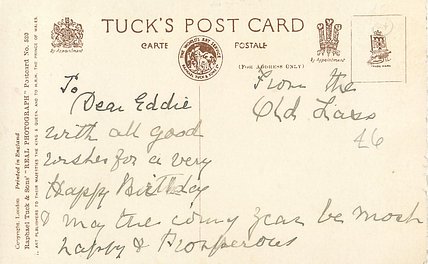 TUCK'S POST CARD
CARTE POSTALE
(FOR ADDRESS ONLY)
By Appointment
By Appointment
TRADE MARK
Copyright. London Printed in England
Raphael Tuck & Sons' "REAL PHOTOGRAPH" Postcard No.
ART PUBLISHERS TO THEIR MAJESTIES THE KING & QUEEN, AND TO H.R.H. THE PRINCE OF WALES.
To
Dear Eddie
with all good
wishes for a very
Happy Birthday
& may the coming year be most
happy & Prosperous
From the
Old Lass
46